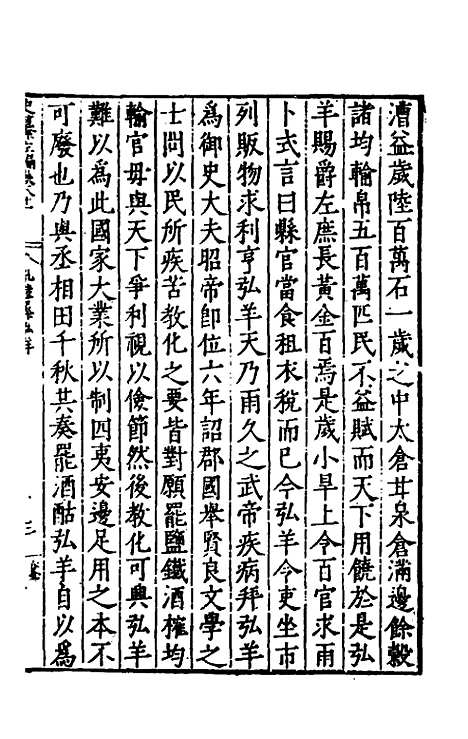 漕益歲陸百萬石一歲之中太倉甘泉倉滿邊餘穀
諸均輸帛五百萬匹民不益賦而天下用饒於是弘
羊賜爵左庶長黃金百焉是歲小旱上令百官求雨
卜式言曰縣官當食祖衣稅而已今弘羊令吏坐市
列販物求利亨弘羊天乃雨久之武帝疾病拜弘羊
為御史大夫昭帝即位六年詔郡國舉賢良文學之
士問以民所疾苦教化之要皆對願罷鹽鐵酒榷均
輸官毋與天下爭利視以儉節然後教化可興弘羊
難以為此國家大業所以制四夷安邊足用之本不
可廢也乃與丞相田千秋共奏罷酒酤弘羊自以為
三